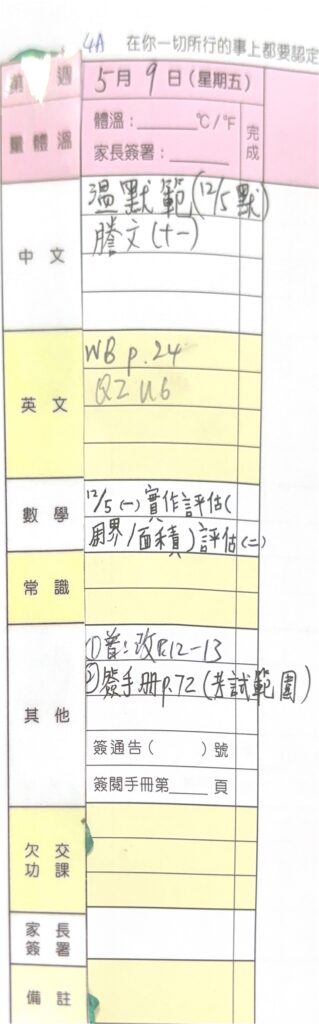 4A 在你一切所行的事上都要認定
第 週 5月9日(星期五)
量體溫 體溫:______°C/°F 完成
家長簽署:______
中文 溫默範(12/5默)
謄文(十一)
英文 WB p.24
QZ U6
數學 12/5(一)實作評估(
周界/面積)評估(二)
常識
其他 ①普:改P.12-13
②簽手冊p.72(考試範圍)
簽通告( )號
簽閱手冊第_____頁
欠交功課
家長簽署
備註